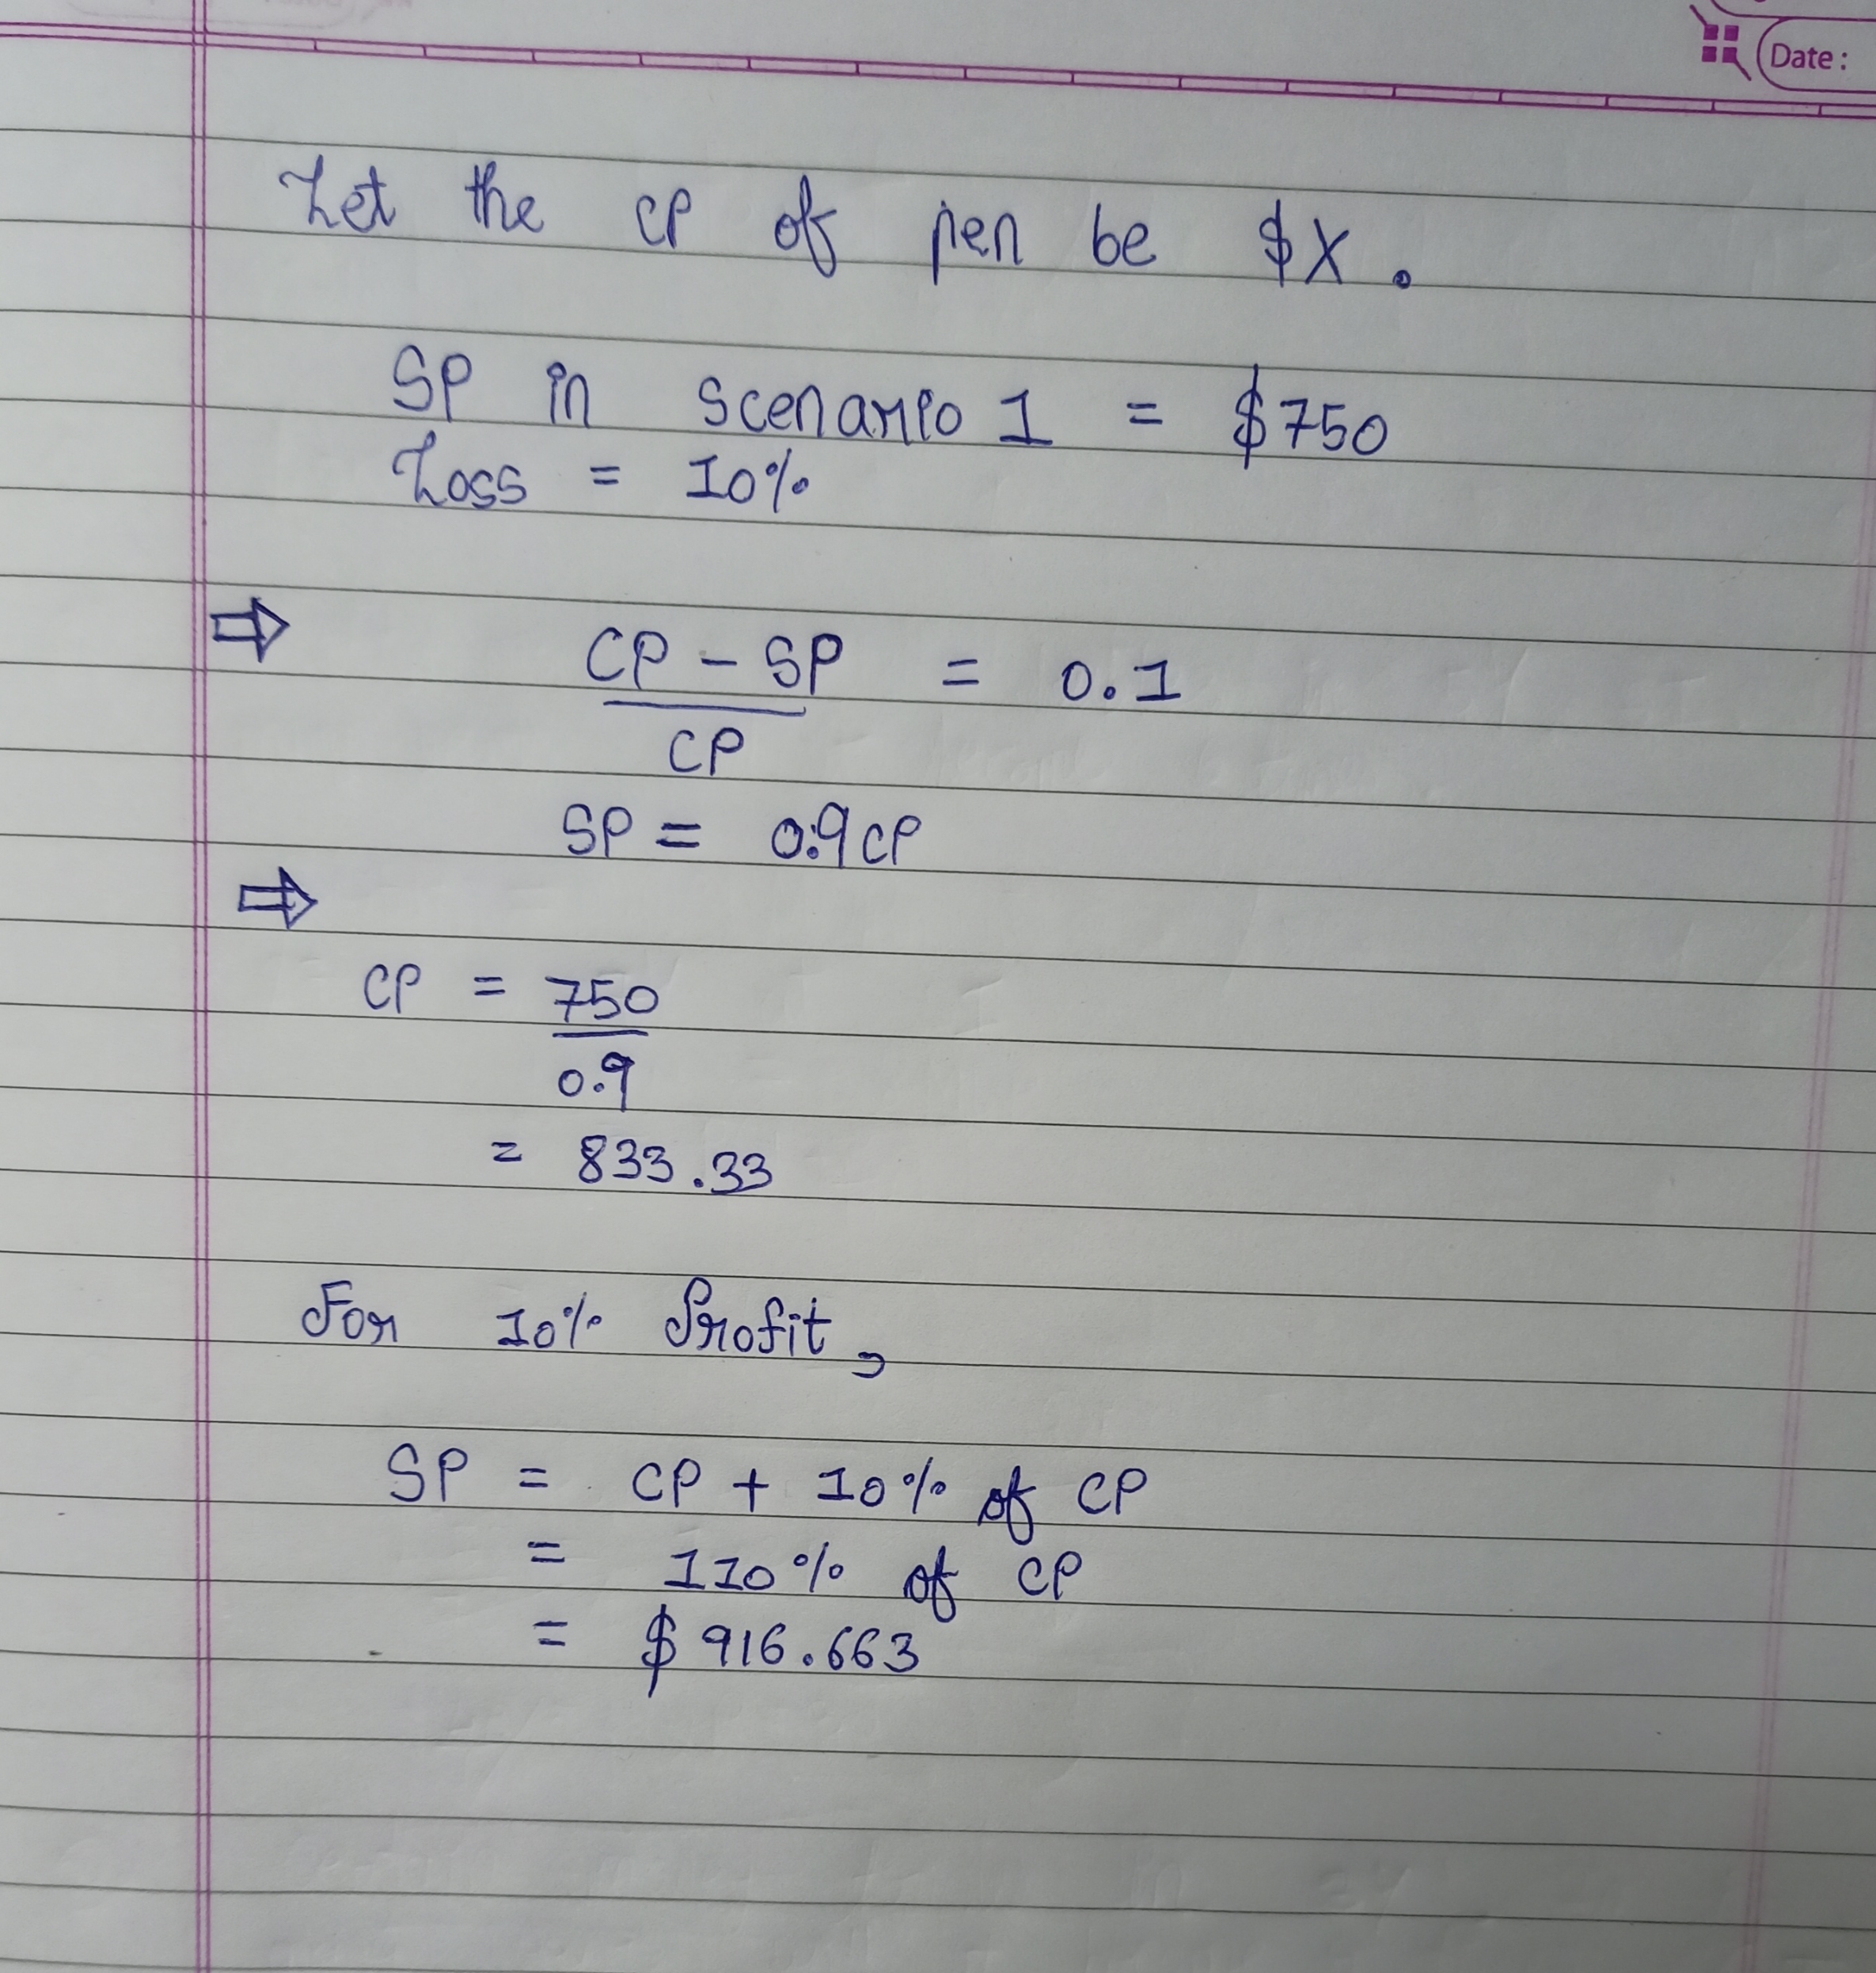 Date :
Let the CP of pen be $X.
SP in scenario 1 = $750
Loss = 10%
⇒ CP - SP = 0.1
CP
SP = 0.9CP
⇒
CP = 750
0.9
= 833.33
For 10% Profit,
SP = CP + 10% of CP
= 110% of CP
= $ 916.663